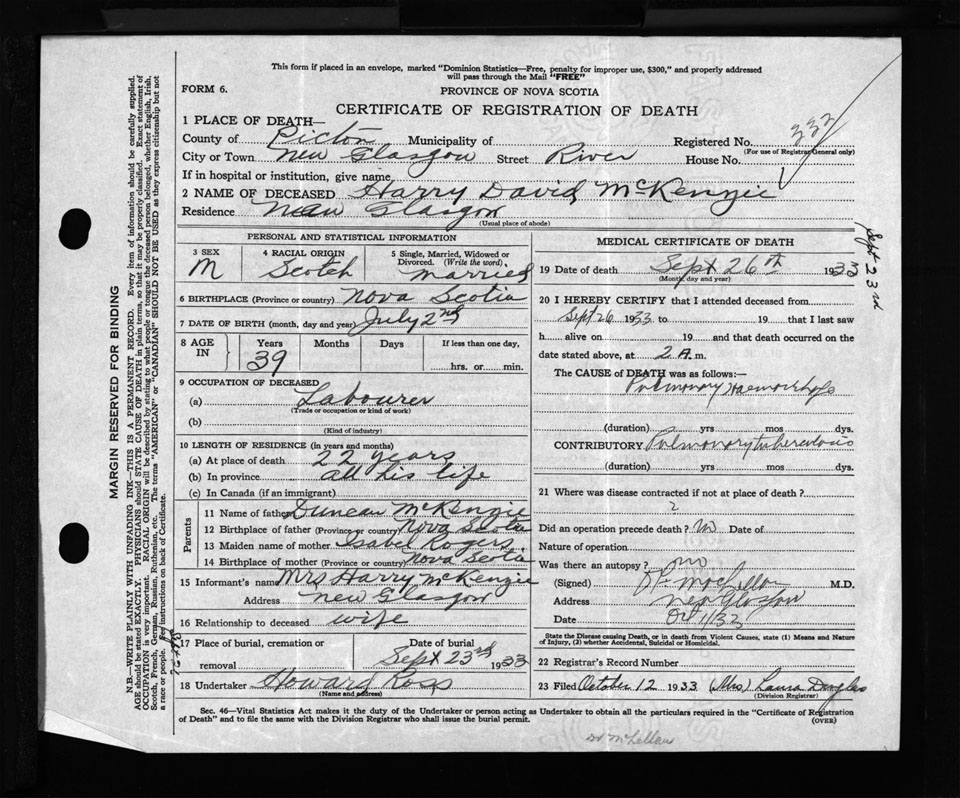 This form if placed in an envelope, marked "Dominion Statistics—Free, penalty for improper use, $300," and properly addressed
will pass through the Mail "FREE"
FORM 6.
PROVINCE OF NOVA SCOTIA
CERTIFICATE OF REGISTRATION OF DEATH
1 PLACE OF DEATH—
County of Pictou Municipality of Registered No. 332
(For use of Registrar General only)
City or Town New Glasgow Street River House No.
If in hospital or institution, give name
2 NAME OF DECEASED Harry David McKenzie
Residence New Glasgow
(Usual place of abode)
PERSONAL AND STATISTICAL INFORMATION
3 SEX 4 RACIAL ORIGIN 5 Single, Married, Widowed or
Divorced. (Write the word)
M Scotch married
6 BIRTHPLACE (Province or country) Nova Scotia
7 DATE OF BIRTH (month, day and year) July 2nd
8 AGE IN Years Months Days If less than one day,
39 hrs. or min.
9 OCCUPATION OF DECEASED
(a) Labourer
(Trade or occupation or kind of work)
(b)
(Kind of industry)
10 LENGTH OF RESIDENCE (in years and months)
(a) At place of death 22 years
(b) In province all his life
(c) In Canada (if an immigrant)
Parents
11 Name of father Duncan McKenzie
12 Birthplace of father (Province or country) Nova Scotia
13 Maiden name of mother Isabel Rogers
14 Birthplace of mother (Province or country) Nova Scotia
15 Informant's name Mrs Harry McKenzie
Address New Glasgow
16 Relationship to deceased wife
17 Place of burial, cremation or Date of burial
removal Sept 23rd 1933
18 Undertaker Howard Ross
(Name and address)
MEDICAL CERTIFICATE OF DEATH
19 Date of death Sept 26th 1933
(Month, day and year)
Sept 23rd
20 I HEREBY CERTIFY that I attended deceased from
Sept 26 1933 to 19 that I last saw
h alive on 19 and that death occurred on the
date stated above, at 2 A. m.
The CAUSE of DEATH was as follows:—
Pulmonary Haemorrhage
(duration) yrs mos dys.
CONTRIBUTORY Pulmonary tuberculosis
(duration) yrs mos dys.
21 Where was disease contracted if not at place of death?
?
Did an operation precede death? no Date of
Nature of operation
Was there an autopsy? no
(Signed) M.D.
Address New Glasgow
Date
State the Disease causing Death, or in death from Violent Causes, state (1) Means and Nature
of Injury, (2) whether Accidental, Suicidal or Homicidal.
22 Registrar's Record Number
23 Filed October 12 1933 (Mrs) Laura Douglas
(Division Registrar)
Sec. 46—Vital Statistics Act makes it the duty of the Undertaker or person acting as Undertaker to obtain all the particulars required in the "Certificate of Registration
of Death" and to file the same with the Division Registrar who shall issue the burial permit.
(OVER)
Dr McLellan
MARGIN RESERVED FOR BINDING
N.B.—WRITE PLAINLY WITH UNFADING INK—THIS IS A PERMANENT RECORD. Every item of information should be carefully supplied.
AGE should be stated EXACTLY. PHYSICIANS should STATE CAUSE OF DEATH in plain terms, so that it may be properly classified. Exact statement of
OCCUPATION is very important. RACIAL ORIGIN will be described by stating to what people or tongue the deceased person belonged, whether English, Irish,
Scotch, French, German, Russian, Ruthenian, etc. The terms "AMERICAN" or "CANADIAN" SHOULD NOT BE USED as they express citizenship but not
a race or people. For instructions on back of Certificate.